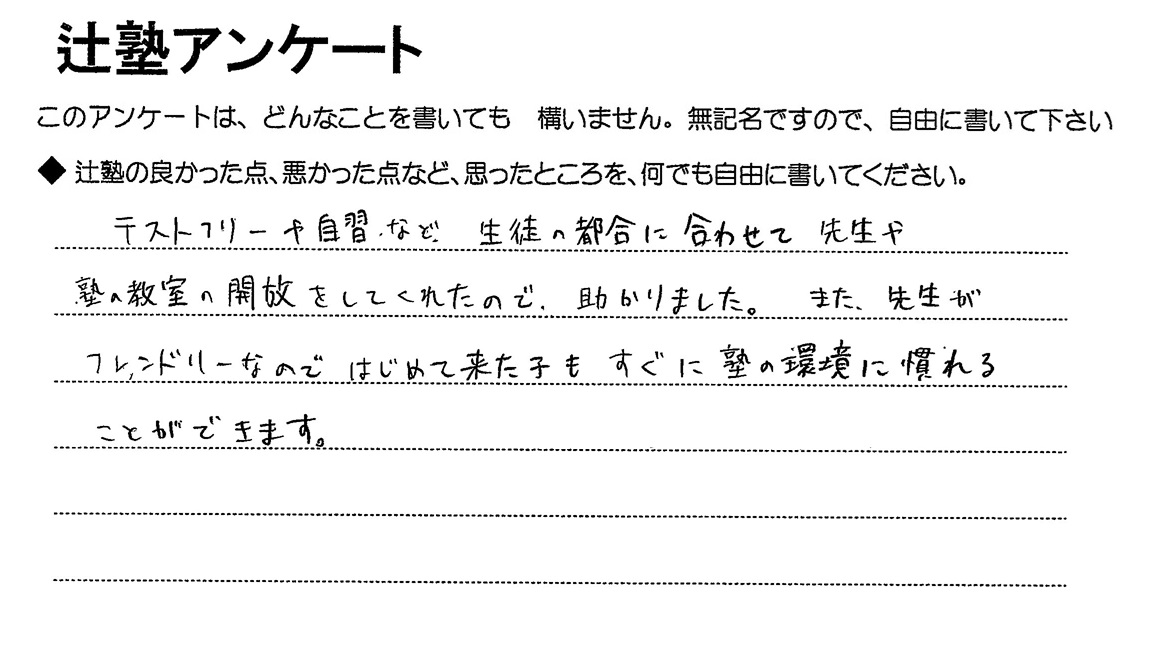 辻塾アンケート
このアンケートは、どんなことを書いても 構いません。無記名ですので、自由に書いて下さい
◆ 辻塾の良かった点、悪かった点など、思ったところを、何でも自由に書いてください。
テストフリーや自習など 生徒の都合に合わせて 先生や
塾の教室の開放をしてくれたので、助かりました。 また、先生が
フレンドリーなので はじめて来た子も すぐに 塾の環境に慣れる
ことができます。